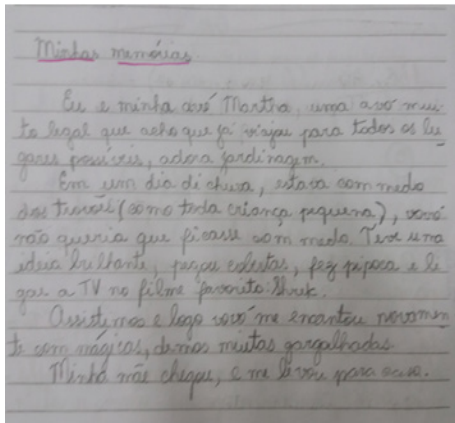 Minhas memórias.
Eu e minha avó Martha, uma avó mui-
to legal que acho que já viajou para todos os lu-
gares possíveis, adora jardinagem.
Em um dia di chuva, estava com medo
dos trovões (como toda criança pequena), vovó
não queria que ficasse com medo. Teve uma
ideia brilhante, pegou cobertas, fez pipoca e li-
gou a TV no filme favorito: Shrek.
Assistimos e logo vovó me encantou novamen-
te com mágicas, demos muitas gargalhadas.
Minha mãe chegou, e me levou para casa.